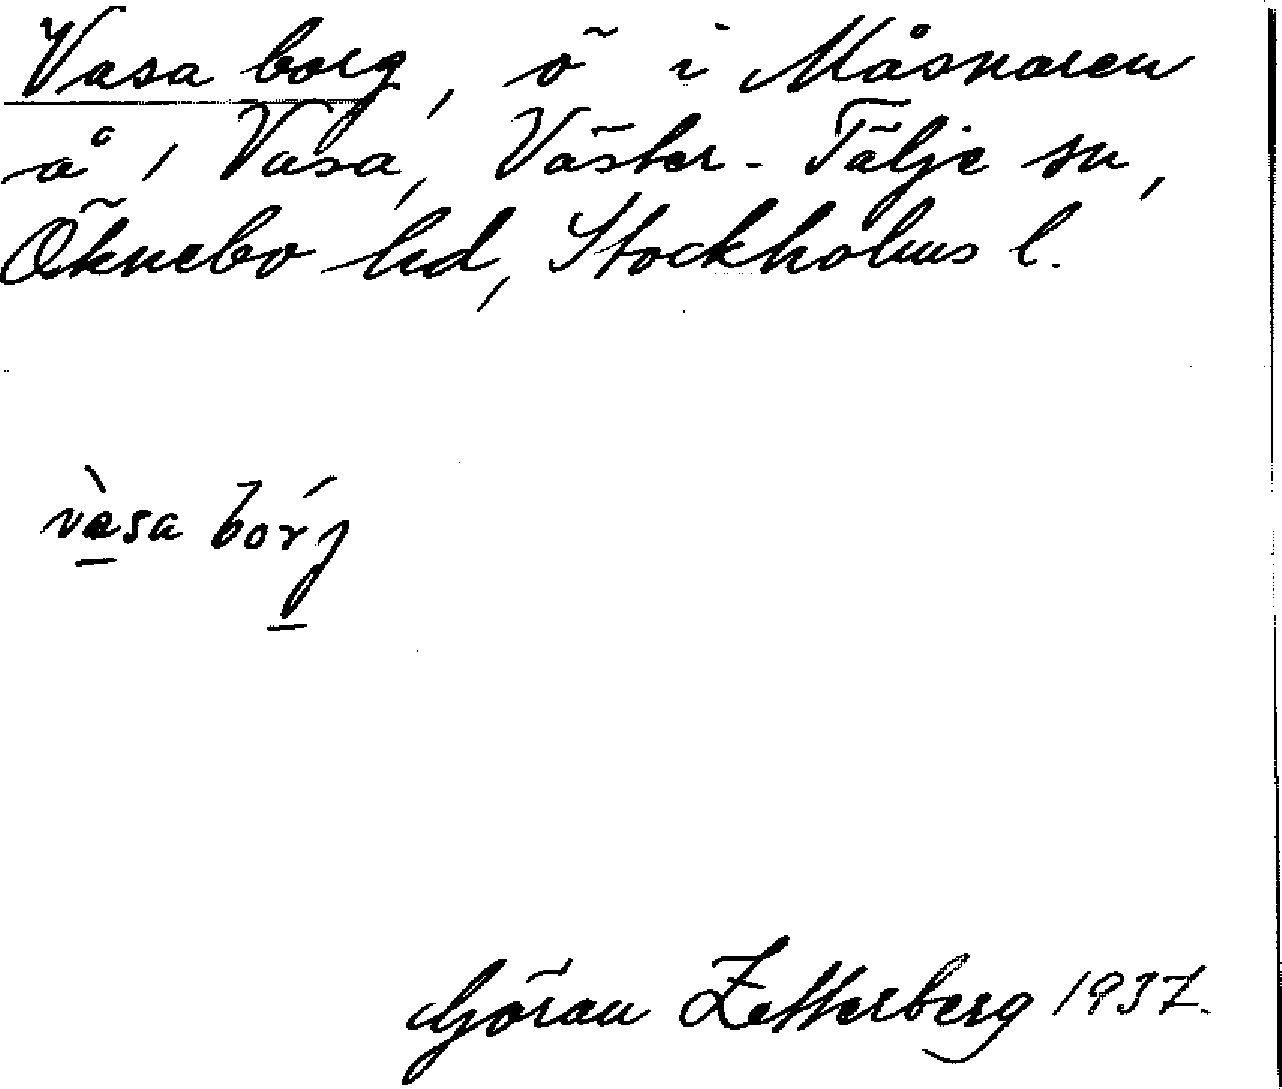 Vasa borg, ö i Måsnaren
å, Vasa, Väster-Tälje sn,
Öknebo hd, Stockholms l.
vàsa bórj
Göran Zetterberg 1937.